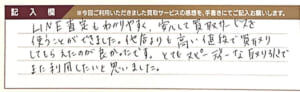 記入欄 ※今回ご利用いただきました買取サービスの感想を、手書きにてご記入お願いします。
LINE査定もわかりやすく、安心して買取サービスを
使うことができました。他店よりも高い値段で買取り
してもらえたのが良かったです。とてもスピーディーな取り引きで
また利用したいと思いました。